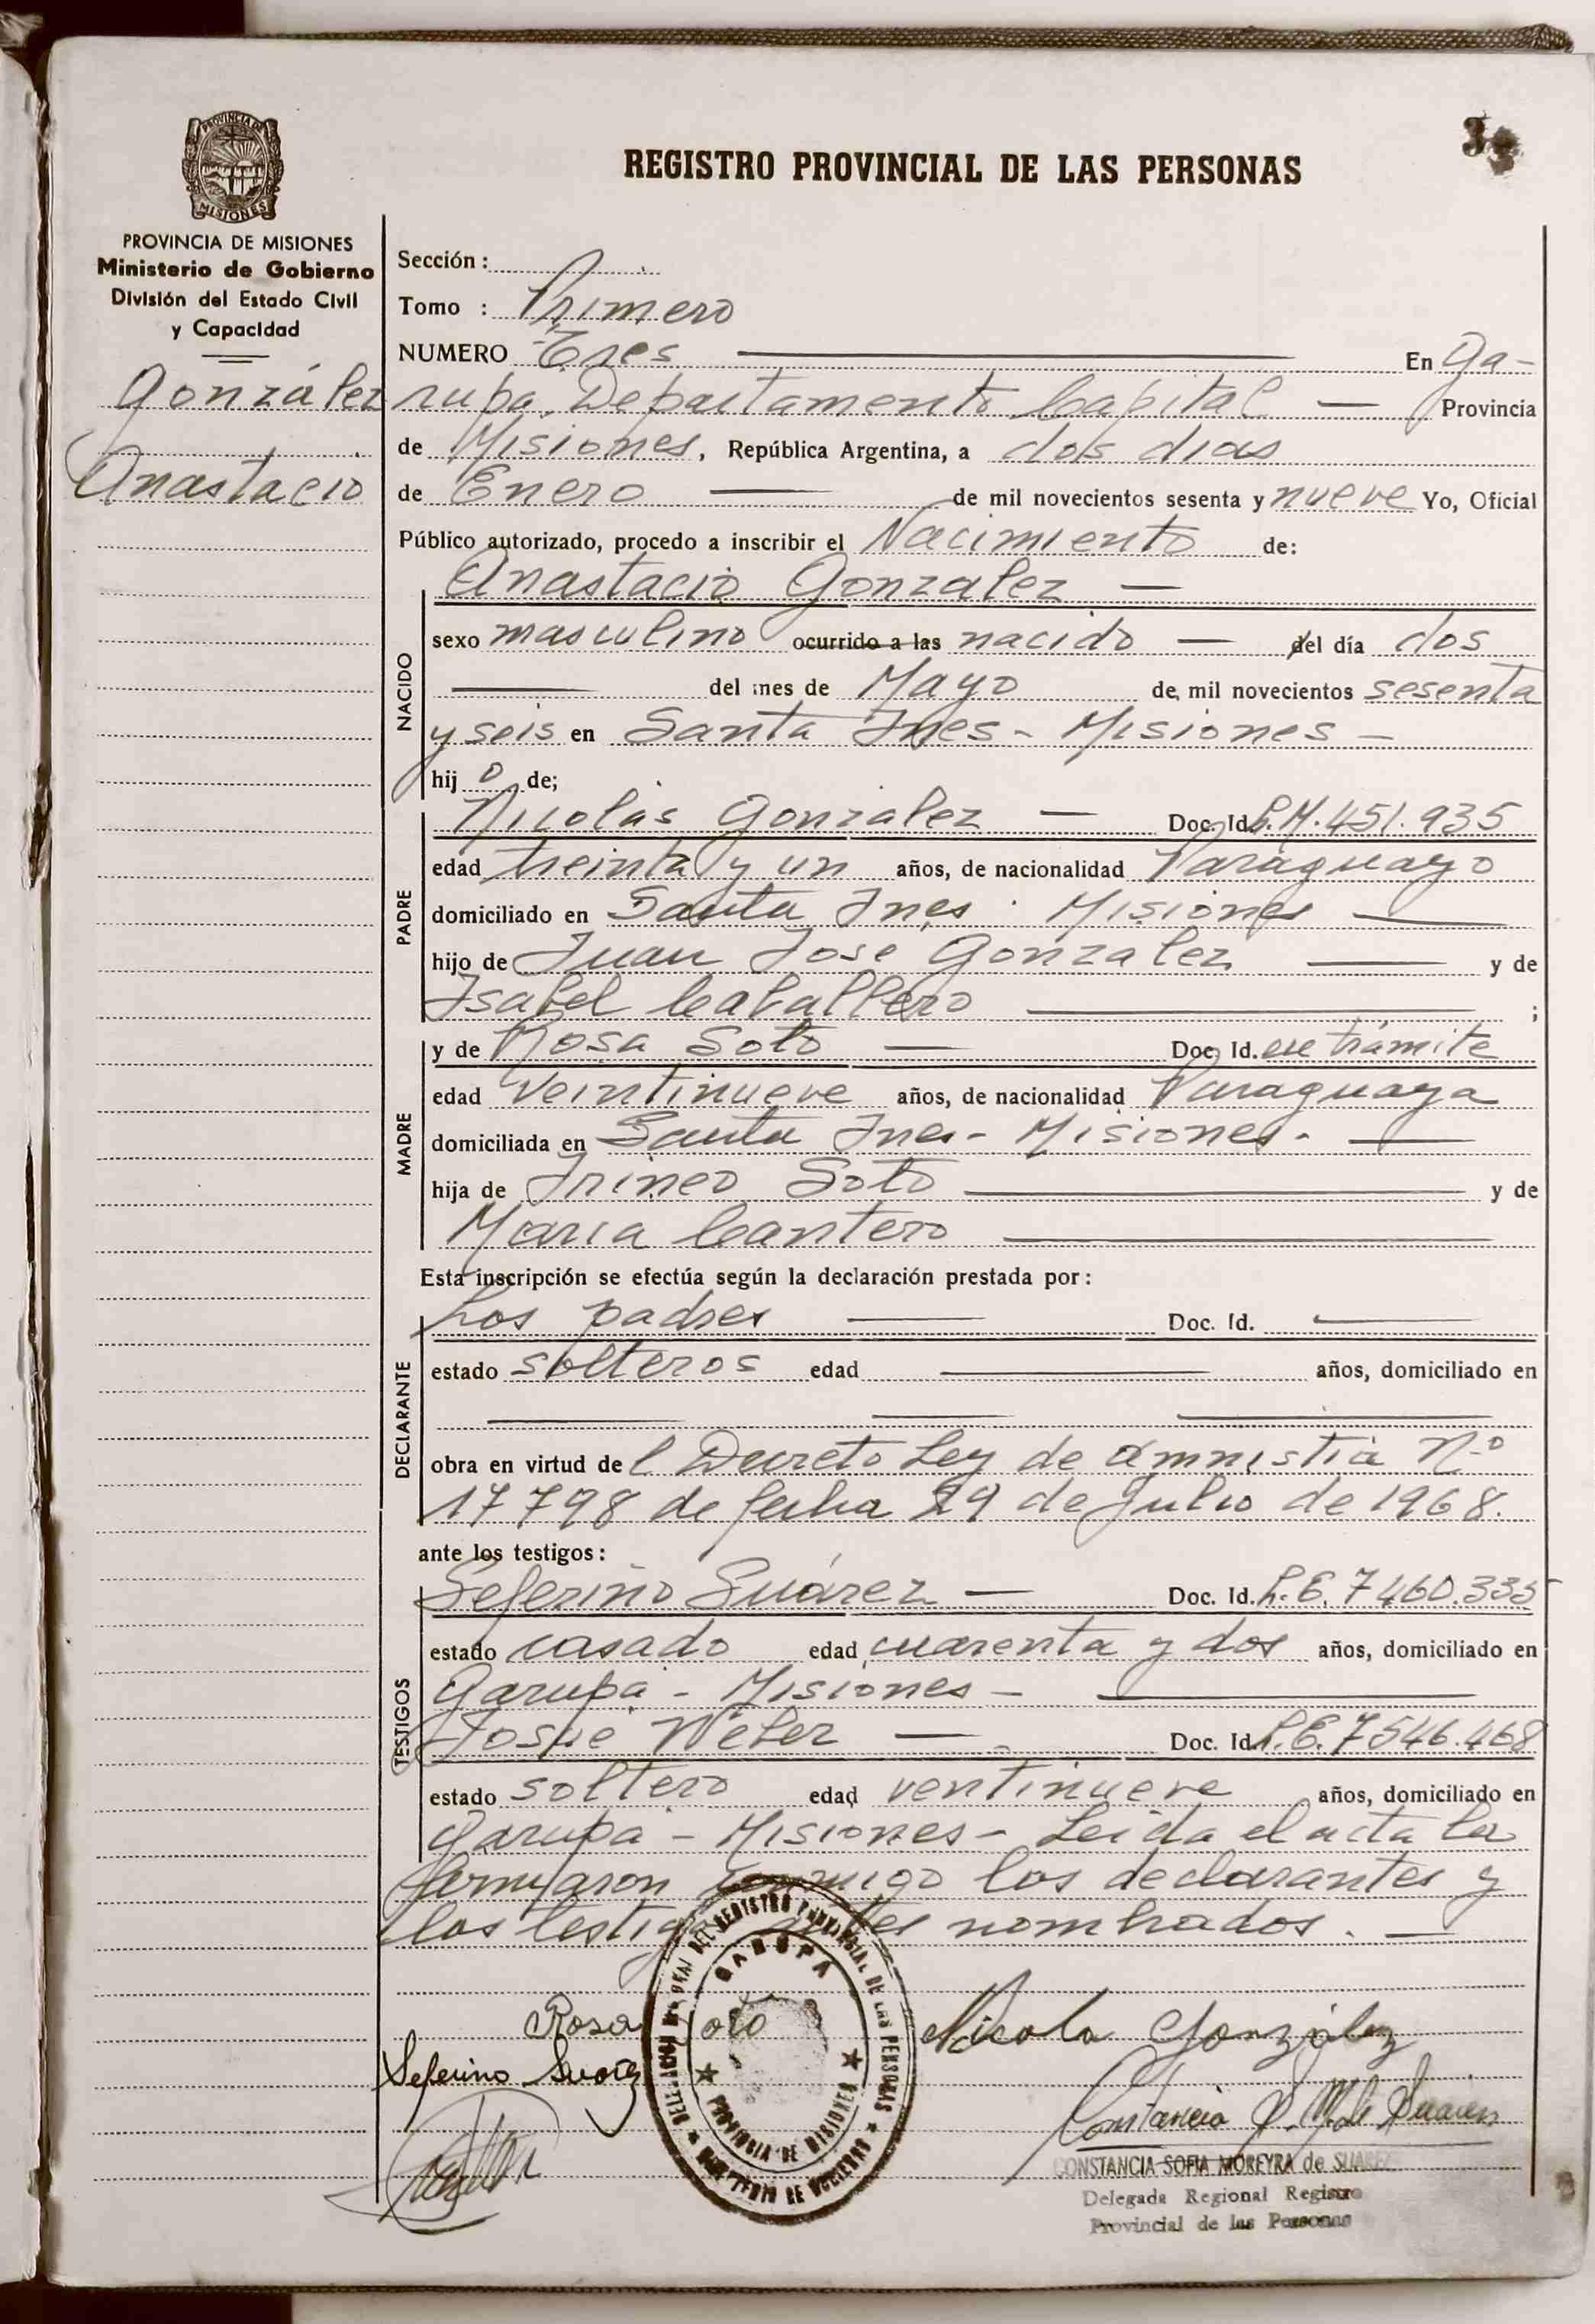 REGISTRO PROVINCIAL DE LAS PERSONAS
PROVINCIA DE
MISIONES
PROVINCIA DE MISIONES
Ministerio de Gobierno
División del Estado Civil
y Capacidad
González
Anastacio
Sección :
Tomo : Primero
NUMERO Tres En Ga-
rupa, Departamento Capital — Provincia
de Misiones, República Argentina, a dos dias
de Enero — de mil novecientos sesenta y nueve Yo, Oficial
Público autorizado, procedo a inscribir el Nacimiento de:
NACIDO
Anastacio Gonzalez —
sexo masculino ocurrido a las nacido — del día dos
— del mes de Mayo de mil novecientos sesenta
y seis en Santa Ines - Misiones -
hij o de;
PADRE
Nicolás Gonzalez — Doc. Id. 451.935
edad treinta y un años, de nacionalidad Paraguayo
domiciliado en Santa Ines · Misiones —
hijo de Juan Jose Gonzalez — y de
Isabel Caballero — ;
MADRE
y de Rosa Soto — Doc. Id. en trámite
edad veintinueve años, de nacionalidad Paraguaya
domiciliada en Santa Ines - Misiones - —
hija de Irineo Soto — y de
Maria Cantero —
Esta inscripción se efectúa según la declaración prestada por :
DECLARANTE
Los padres — Doc. Id. —
estado solteros edad — años, domiciliado en
— — —
obra en virtud de l Decreto Ley de amnistia N.º
17798 de fecha 29 de Julio de 1968.
ante los testigos :
TESTIGOS
Seferino Suárez — Doc. Id. L.E. 7460.335
estado casado edad cuarenta y dos años, domiciliado en
Garupa - Misiones - —
Josue Weber — Doc. Id. L.E. 7546.468
estado soltero edad ventinueve años, domiciliado en
Garupa - Misiones - Leida el acta la
firmaron conmigo los declarantes y
los testigos antes nombrados. —
Rosa oto
Nicola González
Seferino Suarez
Constancia S. M. de Suarez
GARUPA
PROVINCIA DE MISIONES
MINISTERIO DE GOBIERNO
CONSTANCIA SOFIA MOREYRA de SUAREZ
Delegada Regional Registro
Provincial de las Personas